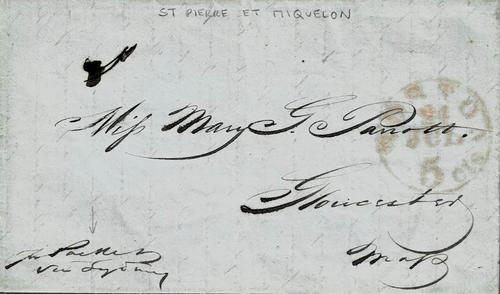 ST PIERRE ET MIQUELON
Miss Mary G. Parrott.
21
JUL
5 cts
Gloucester
Mass
per Packet
via Sydney